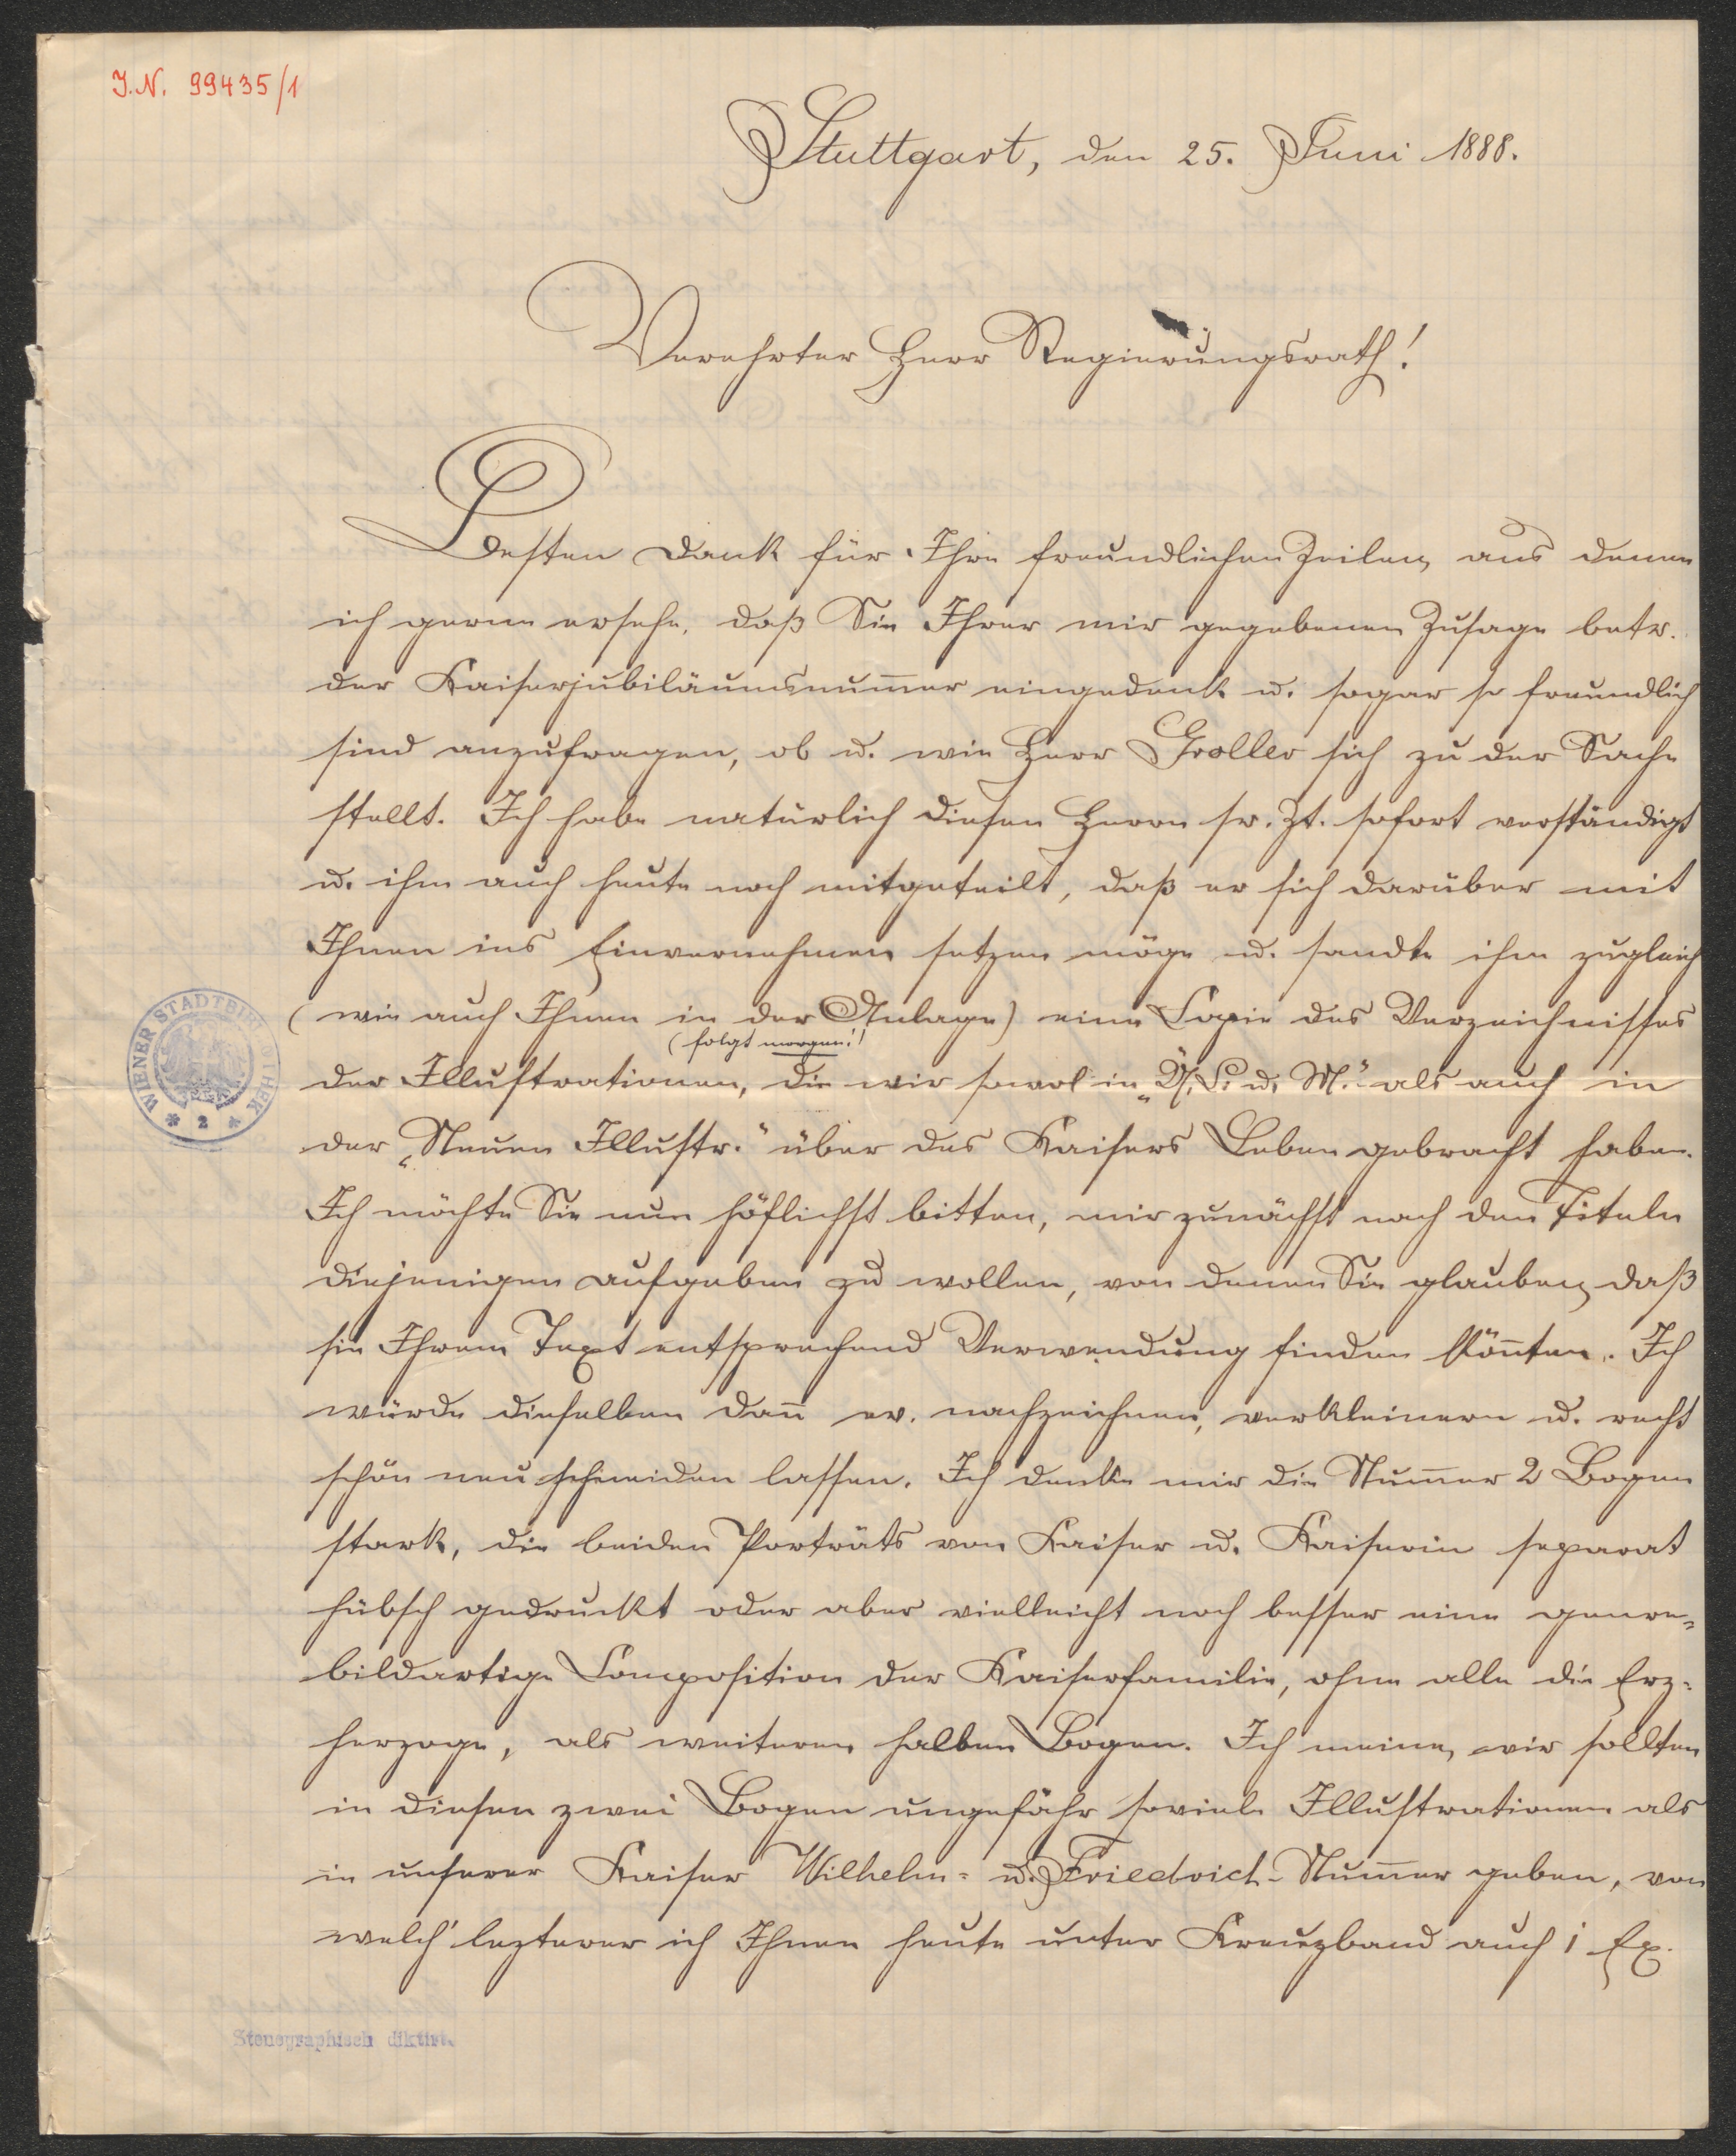 J.N. 99435/1
Stuttgart, den 25. Juni 1888.
Verehrter Herr Regierungsrath!
Besten Dank für Ihre freundlichen Zeilen, aus denen
ich gerne ersehe, daß Sie Ihrer mir gegebenen Zusage betr.
der Kaiserjubiläumsnum̄er eingedenk u. sogar so freundlich
sind anzufragen, ob u. wie Herr Groller sich zu der Sache
stellt. Ich habe natürlich diesen Herrn sr. Zt. sofort verständigt
u. ihm auch heute noch mitgeteilt, daß er sich darüber mit
Ihnen ins Einvernehmen setzen möge u. sandte ihm zugleich
(wie auch Ihnen in der Anlage) eine Copie des Verzeichnisses
(folgt morgen!)
der Illustrationen, die wir sowol in „Ü. L. u. M.“ als auch in
der „Neuen Illustr.“ über des Kaisers Leben gebracht haben.
Ich möchte Sie nun höflichst bitten, mir zunächst nach den Titeln
diejenigen aufgeben zu wollen, von denen Sie glauben, daß
sie Ihrem Text entsprechend Verwendung finden kön̄ten. Ich
würde dieselben dan̄ ev. nachzeichnen, verkleinern u. recht
schön neu schneiden lassen. Ich denke mir die Num̄er 2 Bogen
stark, die beiden Porträts von Kaiser u. Kaiserin separat
hübsch gedruckt oder aber vielleicht noch besser eine genre-
bildartige Composition der Kaiserfamilie, ohne alle die Erz-
herzoge, als weiteren halben Bogen. Ich meine, wir sollten
in diesen zwei Bogen ungefähr soviele Illustrationen als
in unserer Kaiser Wilhelm- u. Friedrich-Num̄er geben, von
welch' lezterer ich Ihnen heute unter Kreuzband auch 1 Ex.
WIENER STADTBIBLIOTHEK
* 2 *
Stenographisch diktirt.